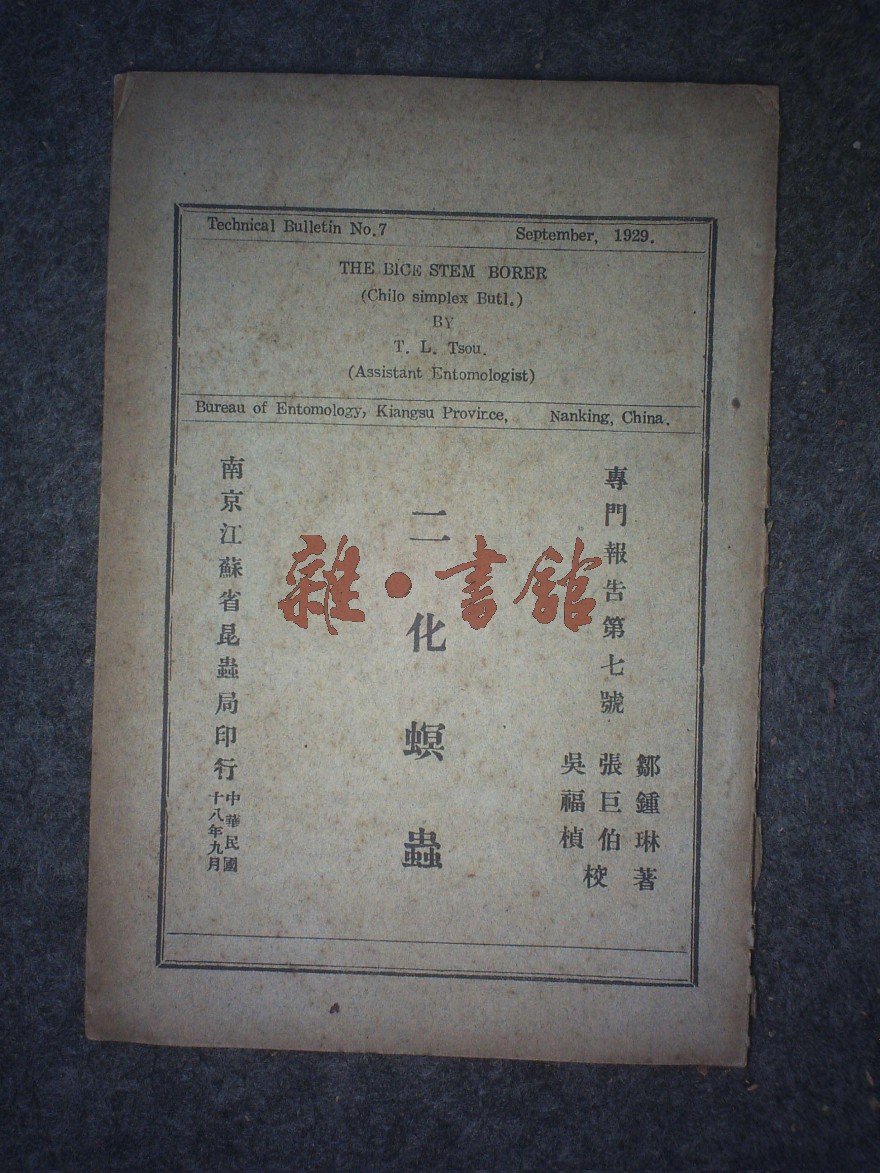 Technical Bulletin No.7 September, 1929.
THE BICE STEM BORER
(Chilo simplex Butl.)
BY
T. L. Tsou.
(Assistant Entomologist)
Bureau of Entomology, Kiangsu Province, Nanking, China.
專門報告第七號
鄒鍾琳著
張巨伯
吳福楨
校
二化螟蟲
南京江蘇省昆蟲局印行
中華民國
十八年九月
雜·書館